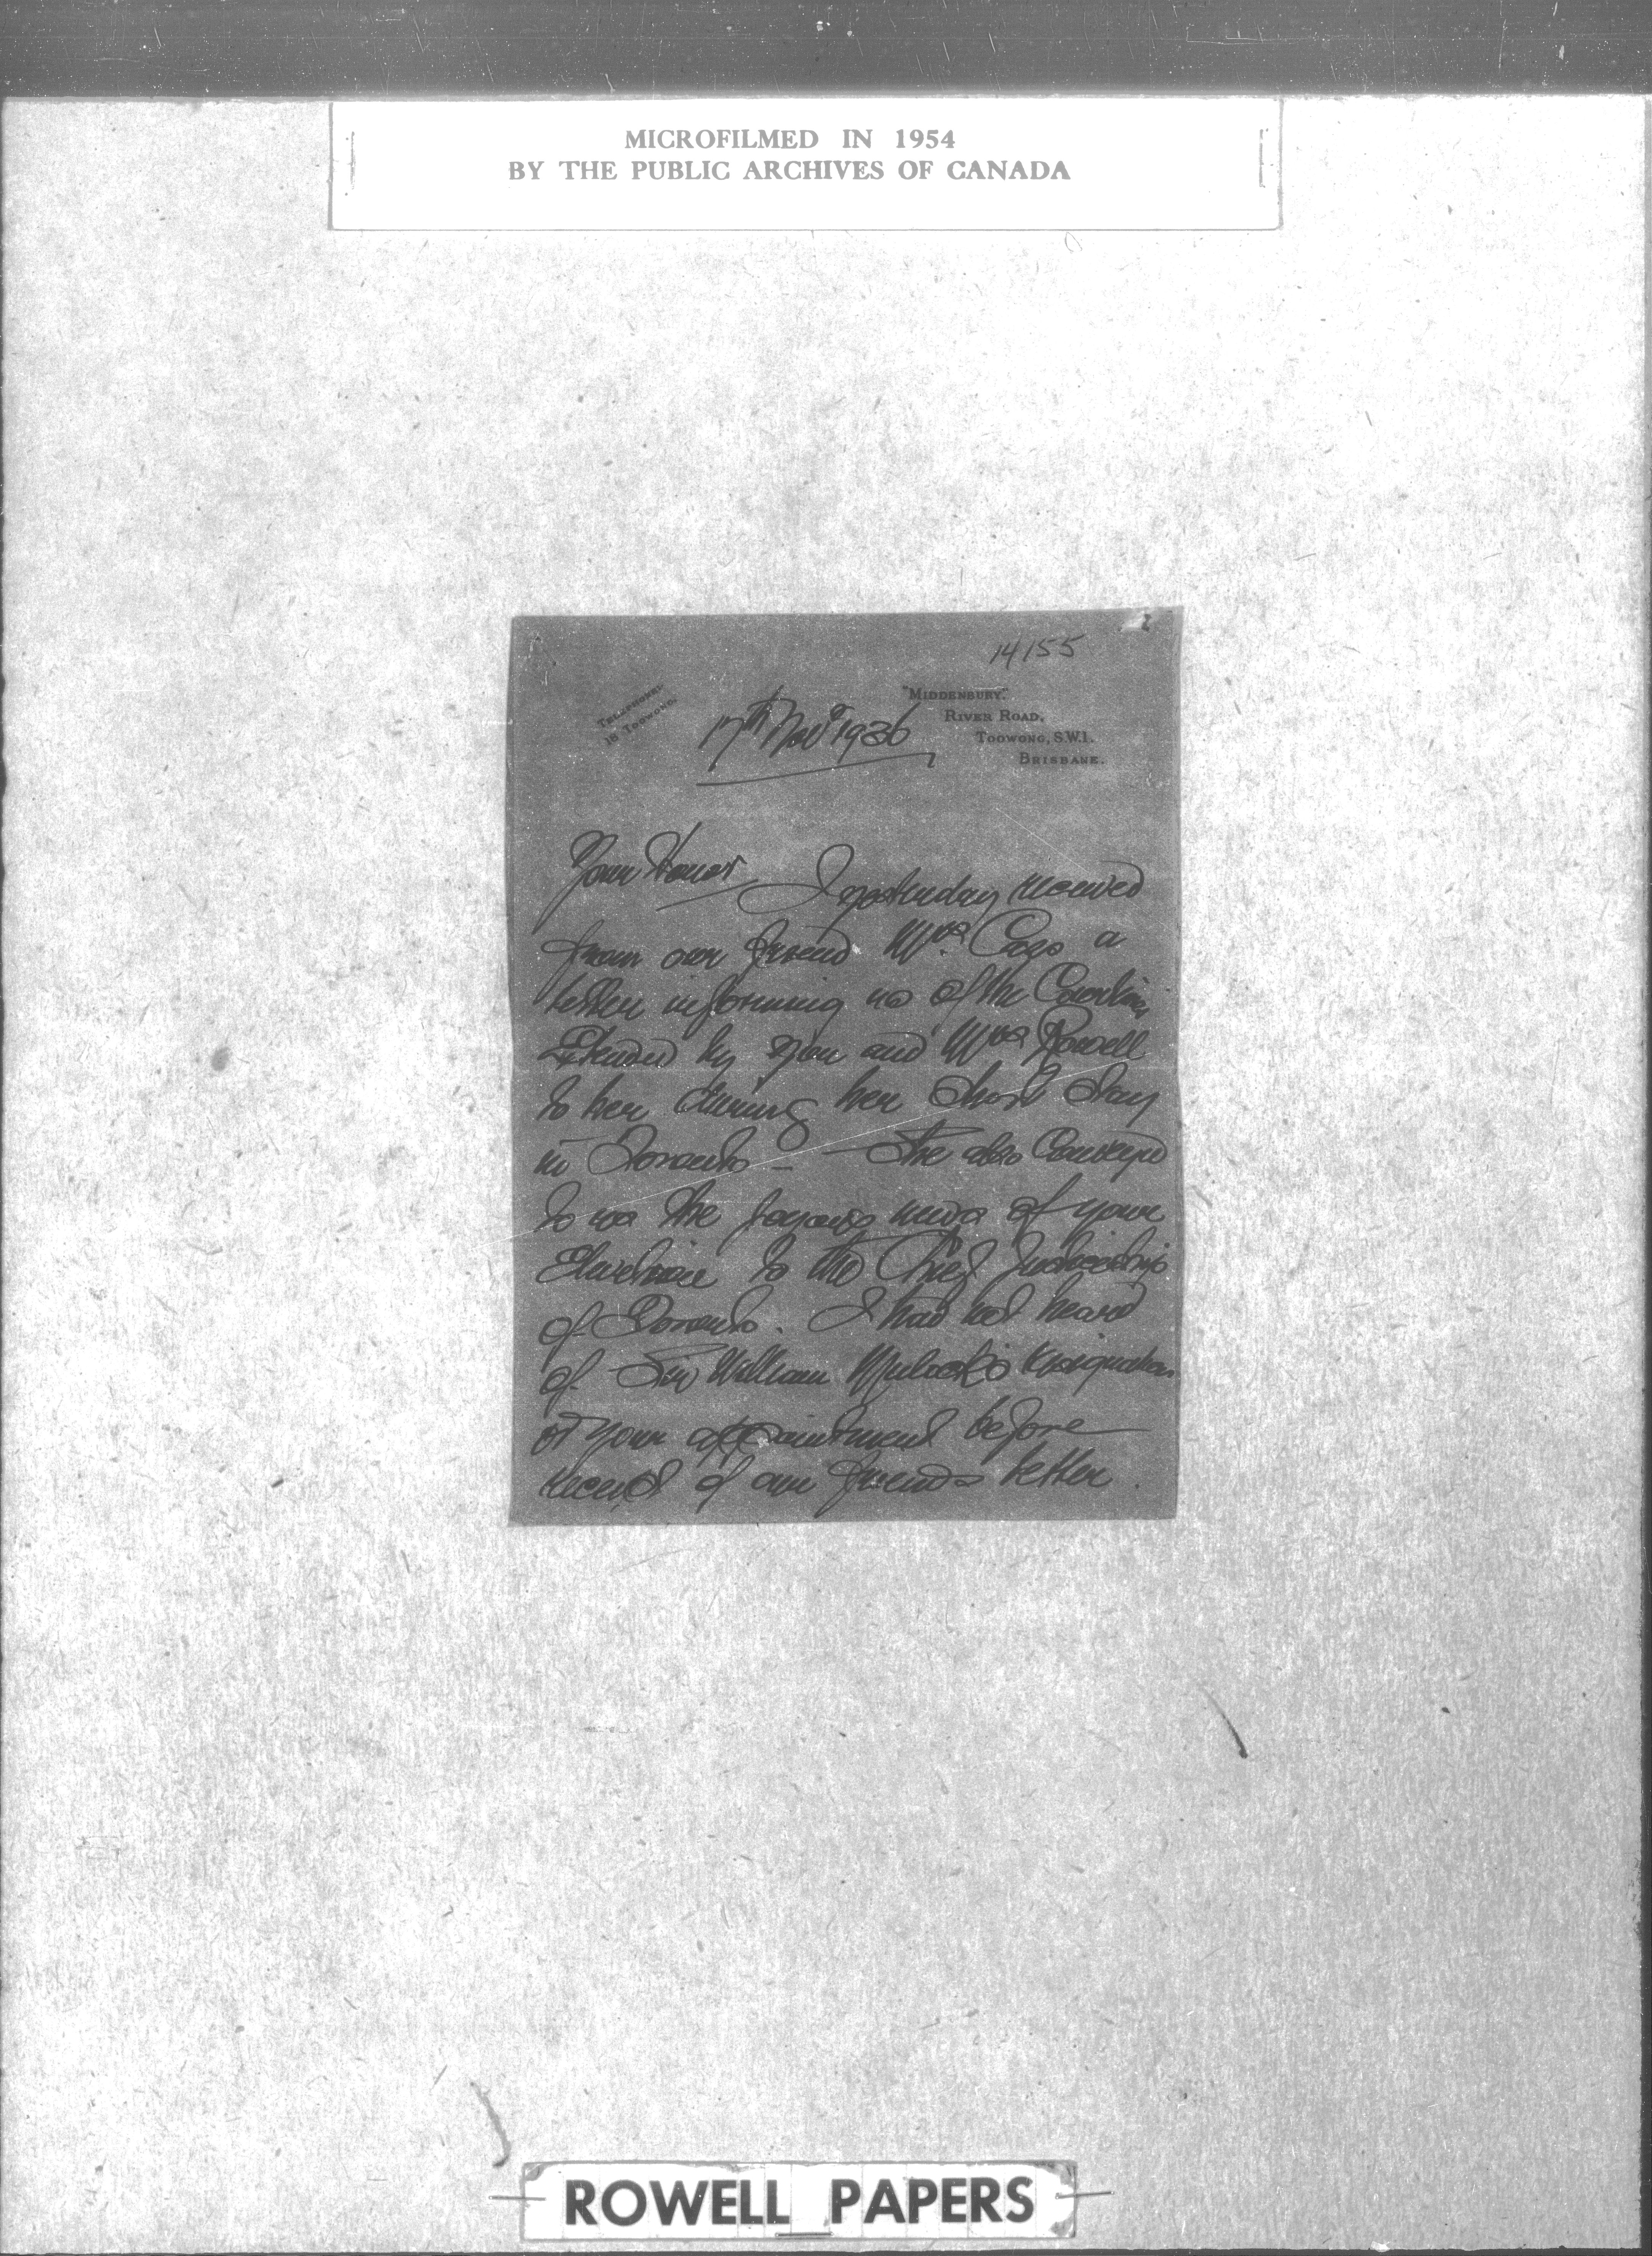 MICROFILMED IN 1954
BY THE PUBLIC ARCHIVES OF CANADA
14155
TELEPHONE:
18 TOOWONG.
"MIDDENBURY."
RIVER ROAD,
TOOWONG, S.W.1.
BRISBANE.
17th Novr 1936
Your Honor I yesterday received
from our friend Mrs. a
letter informing us of the
Extended by you and Mrs Rowell
to her during her short stay
in Toronto – She also Conveyed
to us the joyous news of your
Elevation to the Chief Justiceship
of Toronto. I had not heard
of Sir William Mulock's resignation
or your appointment before
receipt of our friends letter.
ROWELL PAPERS